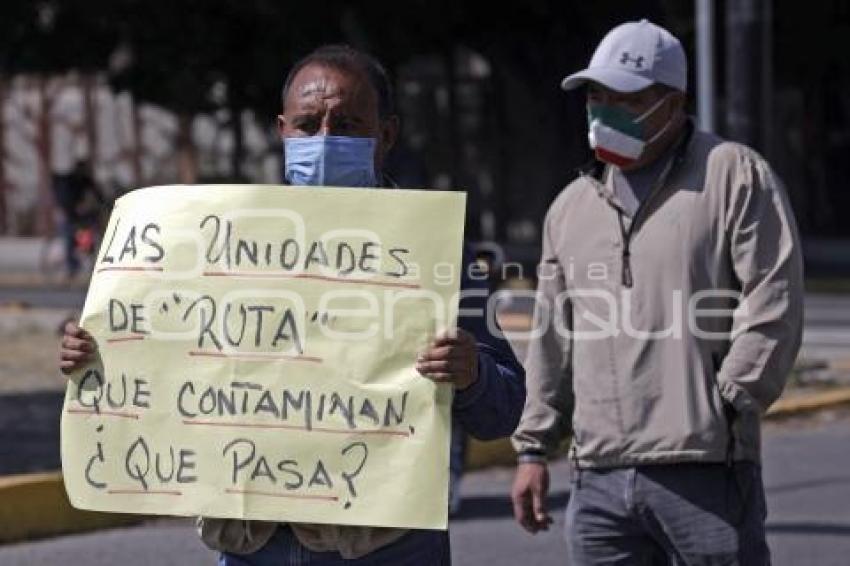 LAS UNIDADES
DE "RUTA"
QUE CONTAMINAN.
¿QUE PASA?
agencia
enfoque